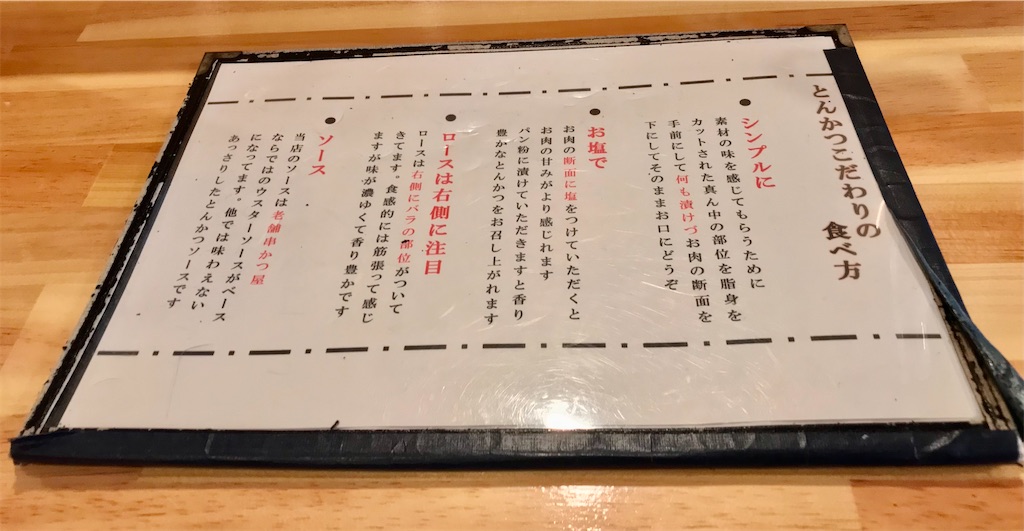 とんかつこだわりの
食べ方
シンプルに
素材の味を感じてもらうために
カットされた真ん中の部位を脂身を
手前にして何も漬けづお肉の断面を
下にしてそのままお口にどうぞ
お塩で
お肉の断面に塩をつけていただくと
お肉の甘みがより感じれます
パン粉に漬けていただきますと香り
豊かなとんかつをお召し上がれます
ロースは右側に注目
ロースは右側にバラの部位がついて
きてます。食感的には筋張って感じ
ますが味が濃ゆくて香り豊かです
ソース
当店のソースは老舗串かつ屋
ならではのウスターソースがベース
になってます。他では味わえない
あっさりしたとんかつソースです